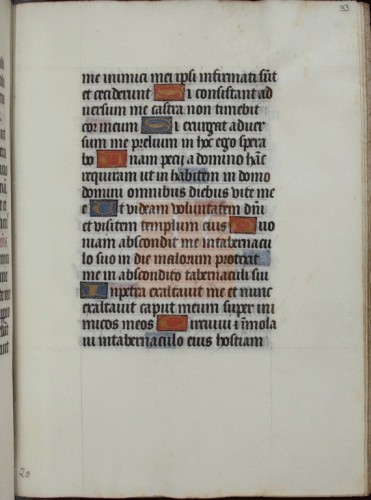 33
me inimici mei ipsi infirmati sūt
et ceciderunt Si consistant ad
versum me castra non timebit
cor meum Si exurgat adver
sum me prelium in hoc ego spera
bo Unam pecij a domino hāc
requiram ut in habitem in domo
domini omnibus diebus vite me
e Ut videam voluntatem dnī
et visitem templum eius Quo
niam abscondit me intabernacu
lo suo in die malorum protexit
me in abscondito tabernaculi sui
In petra exaltavit me et nunc
exaltavit caput meum super ini
micos meos Circuivi et īmola
vi intabernaculo eius hostiam
20